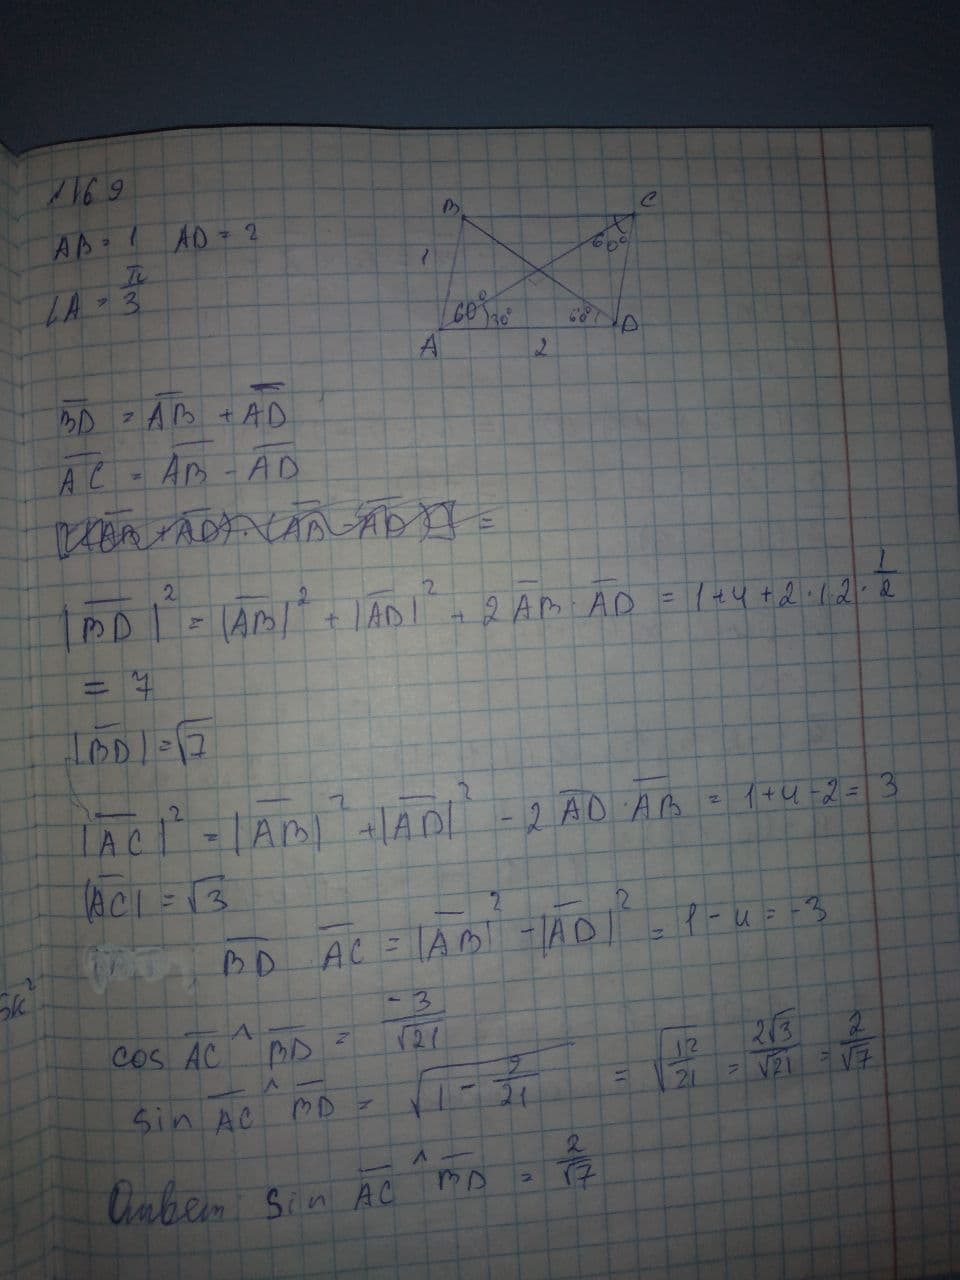 1169
AB = 1 AD = 2
∠A = π/3
B C
1 60°
60° 30° 60°
A 2 D
BD = AB + AD
AC = AB - AD
(AB + AD) · (AB - AD) =
|BD|² = |AB|² + |AD|² + 2 AB · AD = 1+4+2·1·2·1/2
= 7
|BD| = √7
|AC|² = |AB|² + |AD|² - 2 AD · AB = 1+4-2 = 3
|AC| = √3
BD AC = |AB|² - |AD|² = 1 - 4 = -3
5k²
cos AC ^ BD = -3/√21
sin AC ^ BD = √(1 - 9/21) = √(12/21) = 2√3/√21 = 2/√7
Ответ sin AC ^ BD = 2/√7